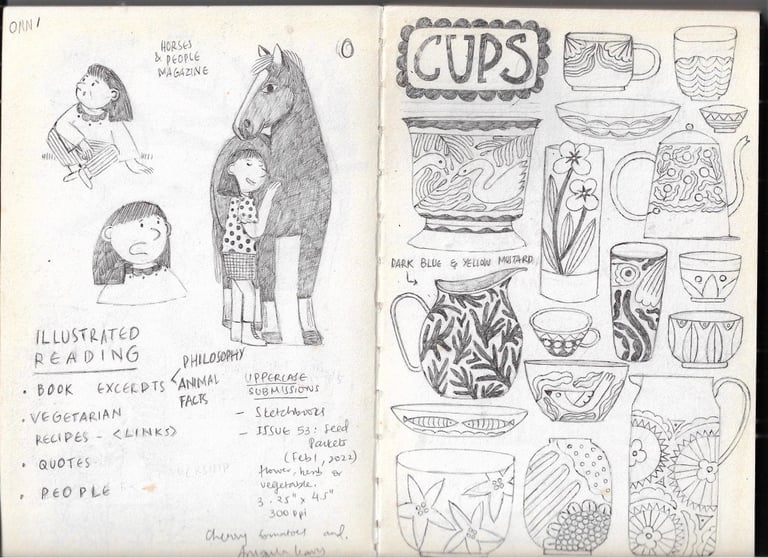 OMNI
HORSES
& PEOPLE
MAGAZINE
ILLUSTRATED
READING
• BOOK EXCERPTS < PHILOSOPHY
ANIMAL
FACTS
• VEGETARIAN
RECIPES - <LINKS>
• QUOTES
• PEOPLE
UPPERCASE
SUBMISSIONS
- Sketchbooks
- ISSUE 53: Seed
Packets
(Feb 1, 2022)
flower, herb or
vegetable.
3.25" x 4.5"
300 ppi
Cherry tomatoes and
CUPS
DARK BLUE & YELLOW MUSTARD